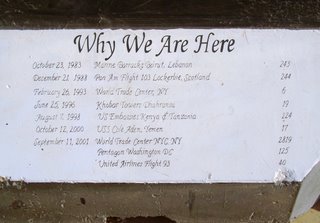 Why We Are Here
October 23, 1983 Marine Barracks Beirut, Lebanon 243
December 21, 1988 Pan Am Flight 103 Lockerbie, Scotland 244
February 26, 1993 World Trade Center, NY 6
June 25, 1996 Khobar Towers Dhahran 19
August 7, 1998 US Embassies Kenya & Tanzania 224
October 12, 2000 USS Cole Aden, Yemen 17
September 11, 2001 World Trade Center NYC, NY 2819
Pentagon Washington DC 125
United Airlines Flight 93 40